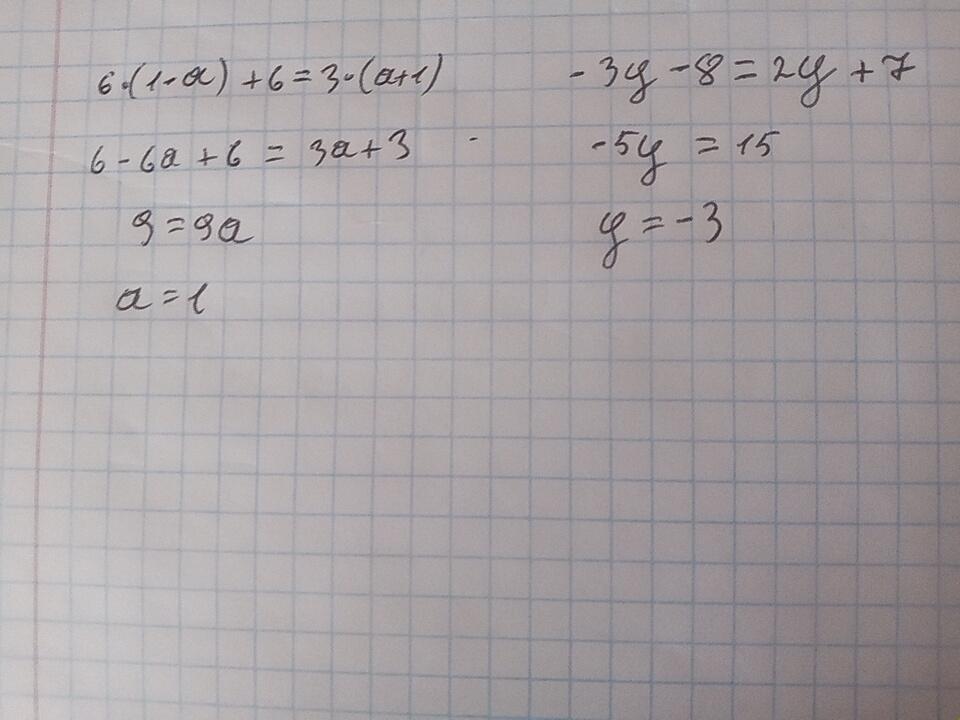 6·(1-a)+6=3·(a+1)
6-6a+6=3a+3
9=9a
a=1
-3y-8=2y+7
-5y=15
y=-3